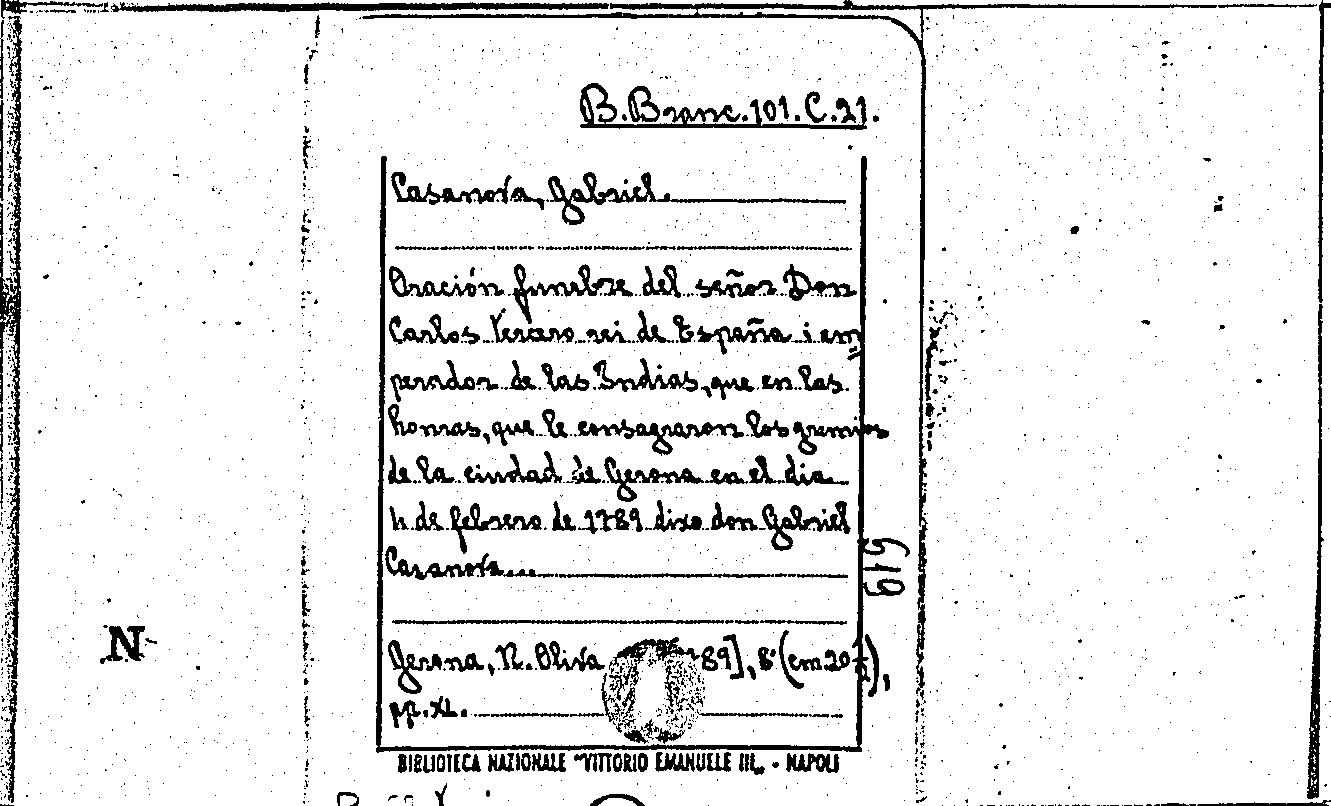 B.Branc.101.C.21.
Casanova, Gabriel.
Oración funebre del señor Don
Carlos Tercero rei de España i em
perador de las Indias, que en las
honras, que le consagraron los gremios
de la ciudad de Gerona en el dia
4 de febrero de 1789 dixo don Gabriel
Casanova...
619
N
Gerona, N. Oliva 89], 8° (cm.20
pp. XL.
BIBLIOTECA NAZIONALE "VITTORIO EMANUELE III„ - NAPOLI